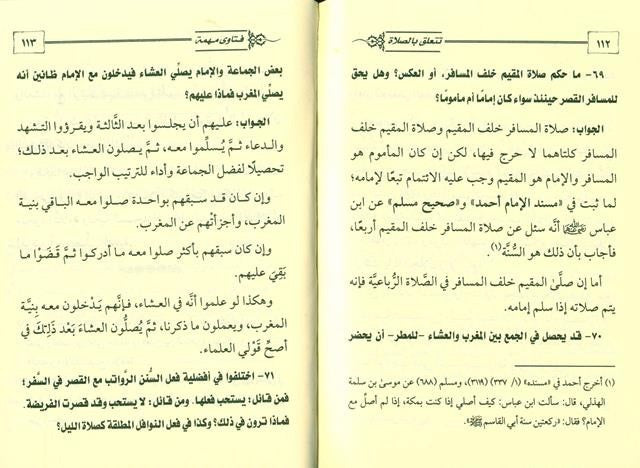 ١١٢
تتعلق بالصلاة
٦٩- ما حكم صلاة المقيم خلف المسافر، أو العكس؟ وهل يحق
للمسافر القصر حينئذ سواء كان إمامًا أم مأمومًا؟
الجواب: صلاة المسافر خلف المقيم وصلاة المقيم خلف
المسافر كلتاهما لا حرج فيها، لكن إن كان المأموم هو
المسافر والإمام هو المقيم وجب عليه الائتمام تبعًا لإمامه؛
لما ثبت في «مسند الإمام أحمد» و«صحيح مسلم» عن ابن
عباس أنَّه سئل عن صلاة المسافر خلف المقيم أربعًا،
فأجاب بأن ذلك هو السُّنَّة(١).
أما إن صلَّى المقيم خلف المسافر في الصَّلاة الرُّباعيَّة فإنه
يتم صلاته إذا سلم إمامه.
٧٠- قد يحصل في الجمع بين المغرب والعشاء -للمطر- أن يحضر
(١) أخرج أحمد في «مسنده» (١/ ٣٣٧) (٣١١٩)، ومسلم (٦٨٨) عن موسى بن سلمة
الهذلي، قال: سألت ابن عباس: كيف أصلي إذا كنت بمكة، إذا لم أصل مع
الإمام؟ فقال: «ركعتين سنة أبي القاسم ﷺ».
فتاوى مهمة
١١٣
بعض الجماعة والإمام يصلِّي العشاء فيدخلون مع الإمام ظانين أنه
يصلِّي المغرب فماذا عليهم؟
الجواب: عليهم أن يجلسوا بعد الثَّالثة ويقرؤوا التشهد
والدعاء ثمَّ يُسلِّموا معه، ثمَّ يصلون العشاء بعد ذلك؛
تحصيلًا لفضل الجماعة وأداء للترتيب الواجب.
وإن كان قد سبقهم بواحدة صلوا معه الباقي بنية
المغرب، وأجزأتهم عن المغرب.
وإن كان سبقهم بأكثر صلوا معه ما أدركوا ثمَّ قَضَوْا ما
بَقِيَ عليهم.
وهكذا لو علموا أنَّه في العشاء، فإنَّهم يَدْخلون معه بِنِيَّة
المغرب، ويعملون ما ذكرنا، ثمَّ يُصلُّون العشاءَ بَعْد ذَلِكَ في
أصحِّ قَوْلي العلماء.
٧١- اختلفوا في أفضلية فعل السُّنن الرَّواتب مع القصر في السَّفر؛
فمن قائل: يستحب فعلها. ومن قائل: لا يستحب وقد قصرت الفريضة.
فماذا ترون في ذلك؟ وكذا في فعل النوافل المطلقة كصلاة الليل؟